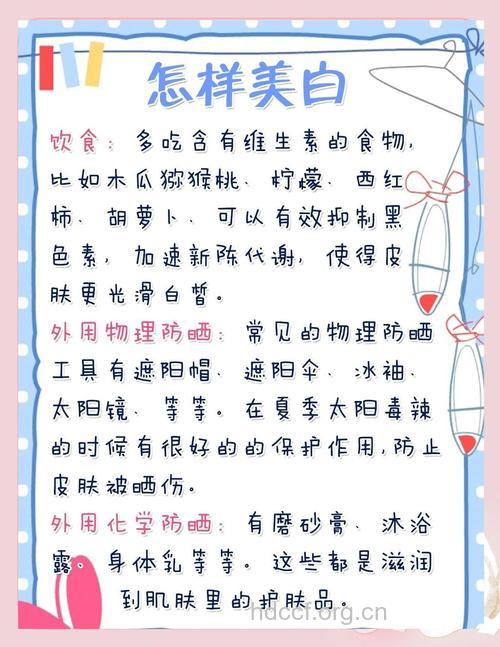 怎样美白
饮食：多吃含有维生素的食物,
比如木瓜猕猴桃、柠檬、西红
柿、胡萝卜、可以有效抑制黑
色素,加速新陈代谢,使得皮
肤更光滑白皙。
外用物理防晒：常见的物理防晒
工具有遮阳帽、遮阳伞、冰袖、
太阳镜、等等。在夏季太阳毒辣
的时候有很好的的保护作用,防止
皮肤被晒伤。
外用化学防晒：有磨砂膏、沐浴
露。身体乳等等。这些都是滋润
到肌肤里的护肤品。
hdccf.org.cn